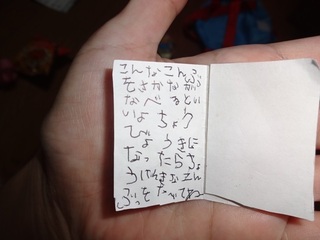 こんなこんぶ
をさかなが
なべるとい
いよ ちょう
びょうきに
なったらちょ
うけんきなこん
ぶをたべてね